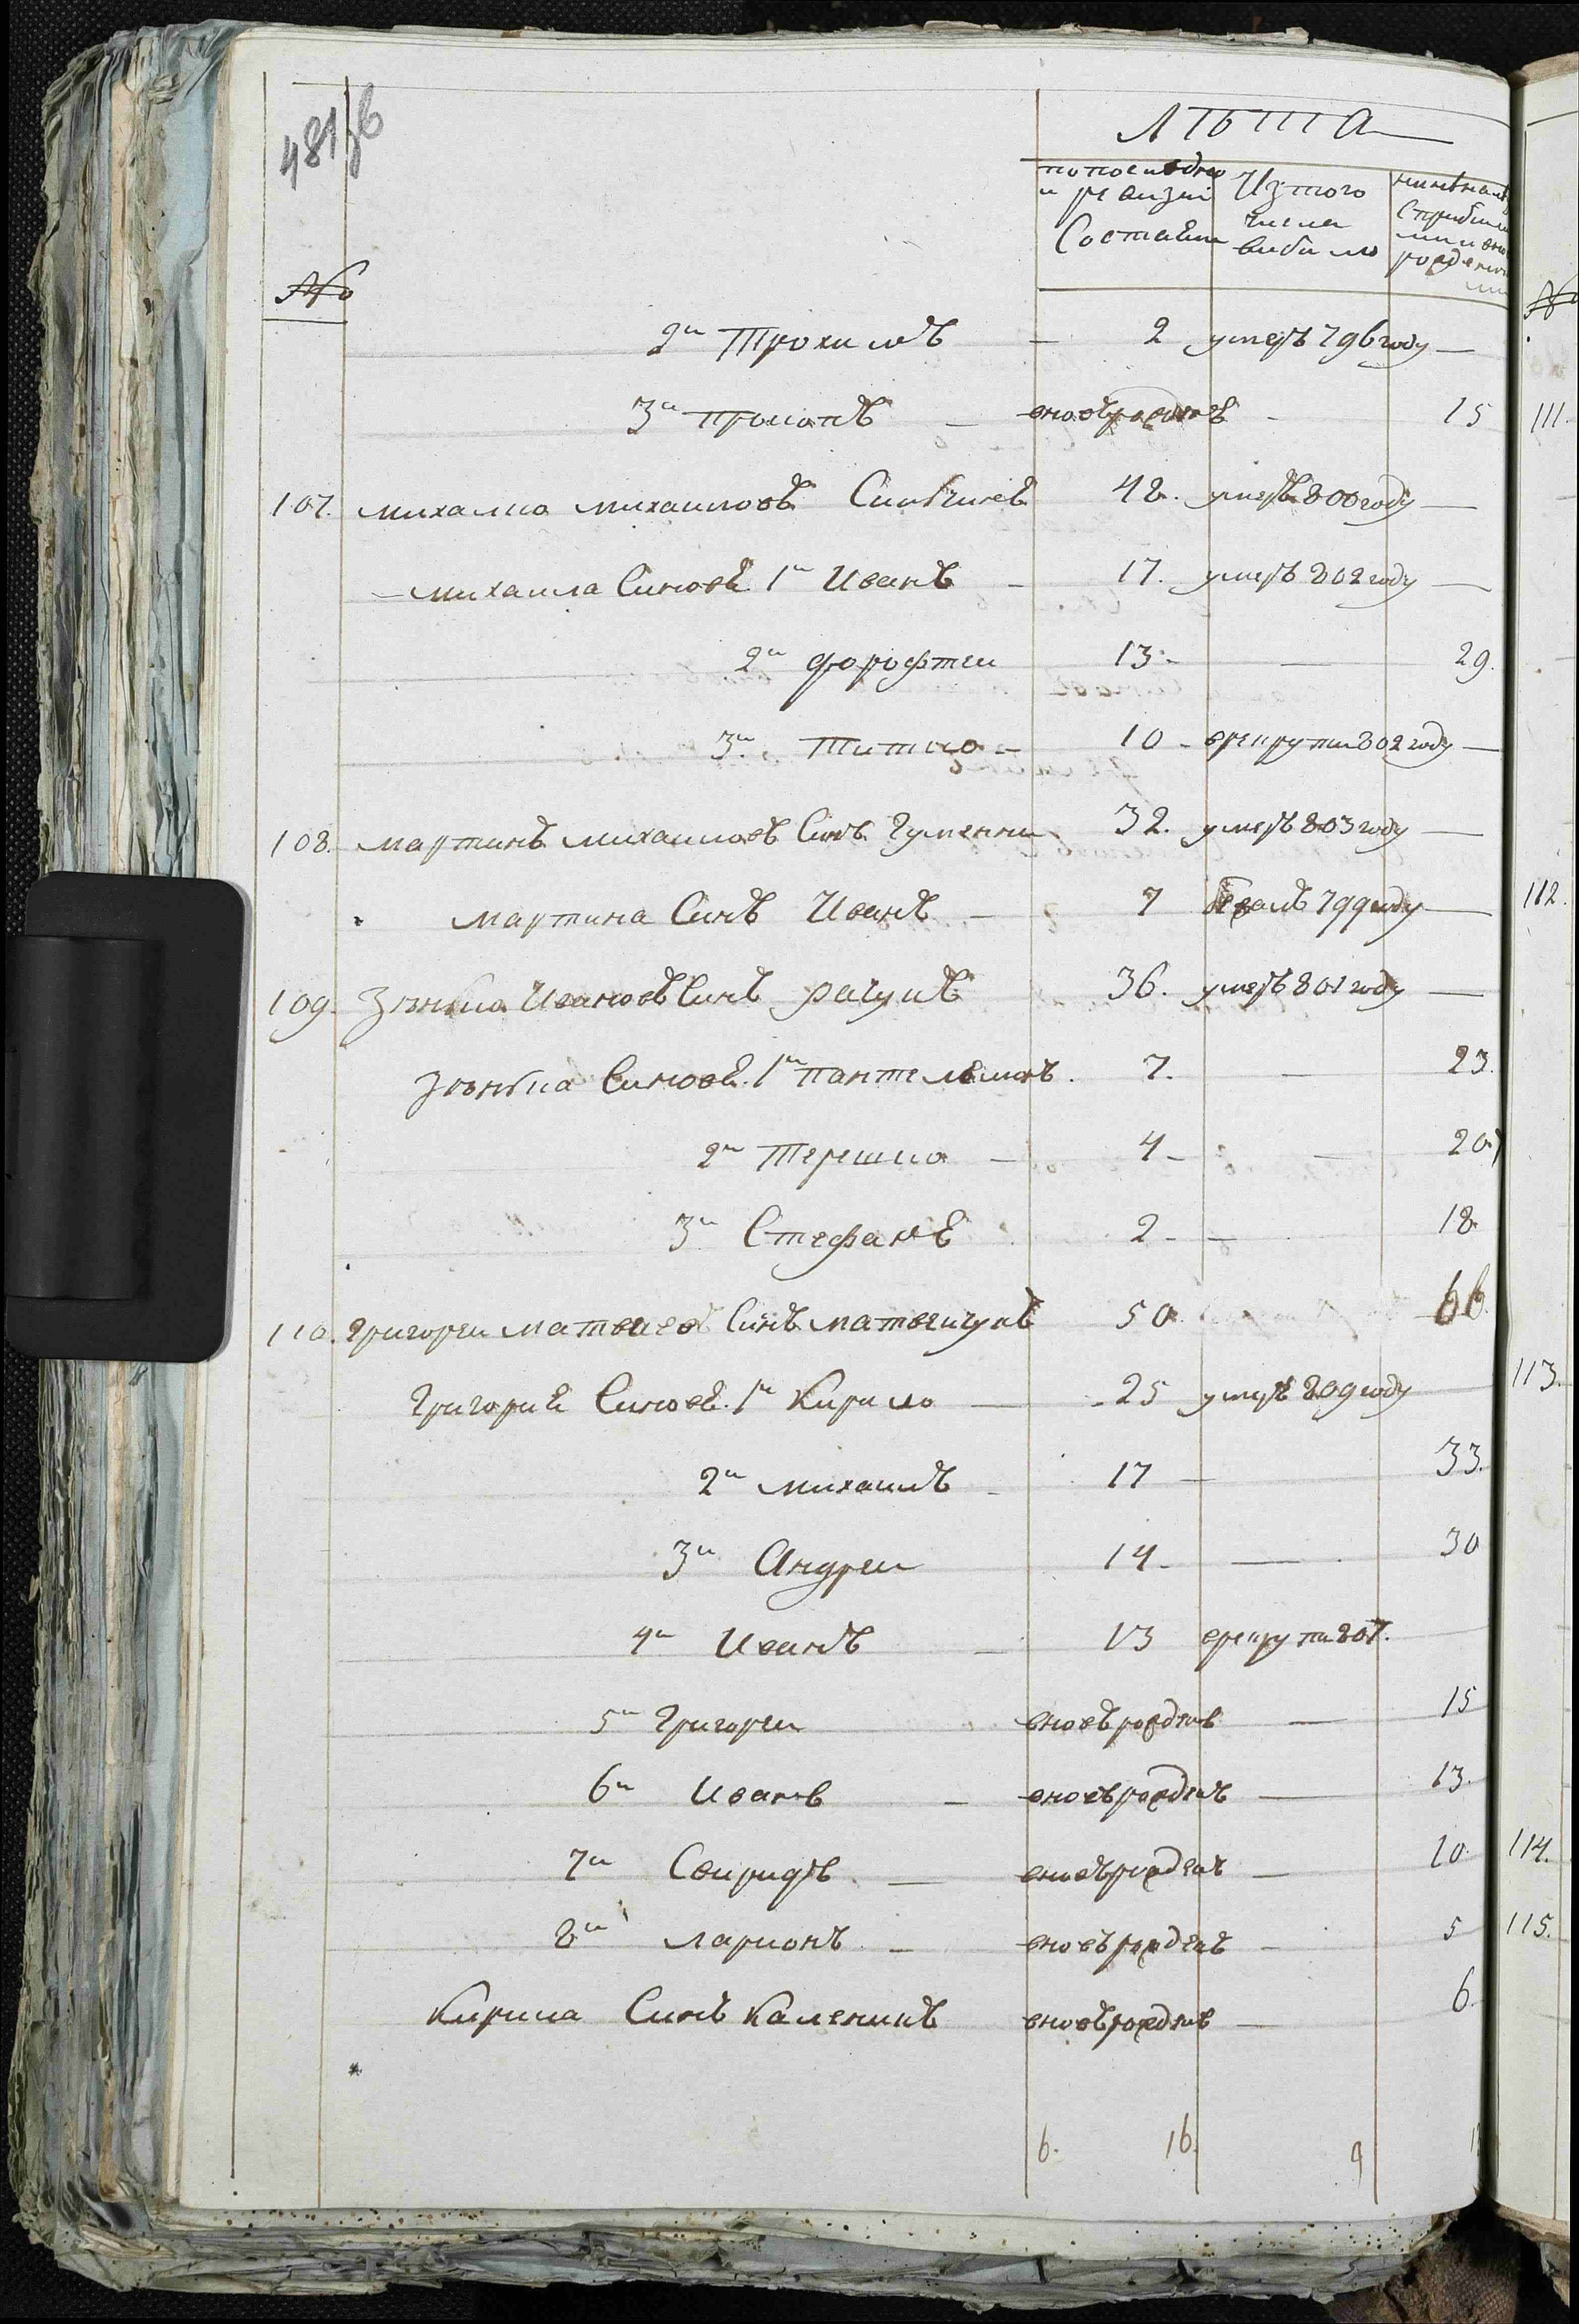 481 зв
Лѣта
По последне
и ревизии
Состаяли
Из того
числа
выбыло
№
2й Трохимъ 2 умеръ 796 году
3й Прокопъ вновьрожденъ 15
107. Михайло Михайловъ Синъ 42. умеръ 800 году
Михайла Синовъ 1й Иванъ 17. умеръ 802 году
2й Форофтеи 13 29.
3й Титко 10 врекрути 802 году
108. Мартинъ Михайловъ Синъ Гуменни 32. умеръ 803 году
Мартина Синъ Иванъ 7 799 году
109. Зѣнько Ивановъ Синъ Рачукъ 36. умеръ 801 году
Зѣнька Синовъ 1й Пантелѣмонъ 7. 23.
2й Терешко 4 20
3й Стефанъ 2 18
110. Григореи Матвеевъ Синъ Матвеичукъ 50 66.
Григория Синовъ 1й Кирило 25 умеръ 809 году
2й Михаилъ 17 33.
3й Андреи 14 30
4й Иванъ 13 врекрути 807.
5й Григореи вновьрожденъ 15
6й Иванъ вновьрожденъ 13.
7й Свиридъ вновьрожденъ 10.
8й Ларионъ вновьрожденъ 5
Кирила Синъ Каленикъ вновьрожденъ 6.
6. 16. 9
№
111.
112.
113.
114.
115.